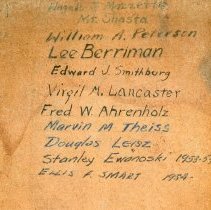 Mt. Shasta
William A. Peterson
Lee Berriman
Edward J. Smithburg
Virgil M. Lancaster
Fred W. Ahrenholz
Marvin M. Theiss
Douglas Leisz
Stanley Ewanoski 1953-5
Ellis F. Smart 1954-